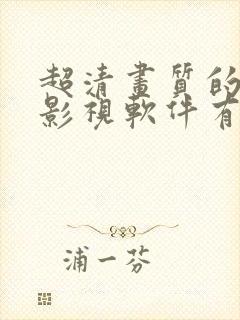 超清畫質的
影視軟件有
浦一芬